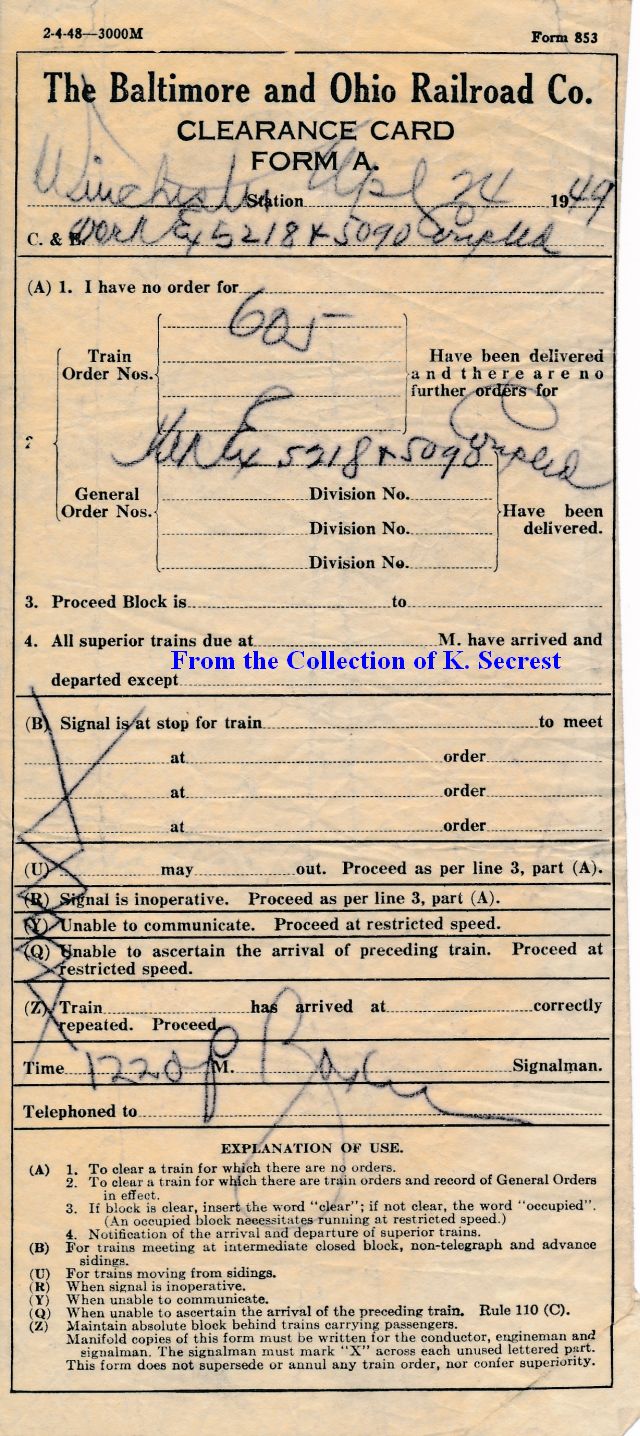 2-4-48—3000M Form 853
The Baltimore and Ohio Railroad Co.
CLEARANCE CARD
FORM A.
Winchester Station Apl 24 1949
C. & E. Work Ex 5218 & 5090 Coupled
(A) 1. I have no order for
605
Train Order Nos. Have been delivered and there are no further orders for
2
Wk Ex 5218 & 5090 Coupled
General Order Nos. Division No. Have been delivered.
Division No.
Division No.
3. Proceed Block is to
4. All superior trains due at M. have arrived and
From the Collection of K. Secrest
departed except
(B) Signal is at stop for train to meet
at order
at order
at order
(U) may out. Proceed as per line 3, part (A).
(R) Signal is inoperative. Proceed as per line 3, part (A).
(Y) Unable to communicate. Proceed at restricted speed.
(Q) Unable to ascertain the arrival of preceding train. Proceed at
restricted speed.
(Z) Train has arrived at correctly
repeated. Proceed
Time 1220 P M. Signalman.
Telephoned to
EXPLANATION OF USE.
(A) 1. To clear a train for which there are no orders.
2. To clear a train for which there are train orders and record of General Orders
in effect.
3. If block is clear, insert the word "clear"; if not clear, the word "occupied".
(An occupied block necessitates running at restricted speed.)
4. Notification of the arrival and departure of superior trains.
(B) For trains meeting at intermediate closed block, non-telegraph and advance
sidings.
(U) For trains moving from sidings.
(R) When signal is inoperative.
(Y) When unable to communicate.
(Q) When unable to ascertain the arrival of the preceding train. Rule 110 (C).
(Z) Maintain absolute block behind trains carrying passengers.
Manifold copies of this form must be written for the conductor, engineman and
signalman. The signalman must mark "X" across each unused lettered part.
This form does not supersede or annul any train order, nor confer superiority.